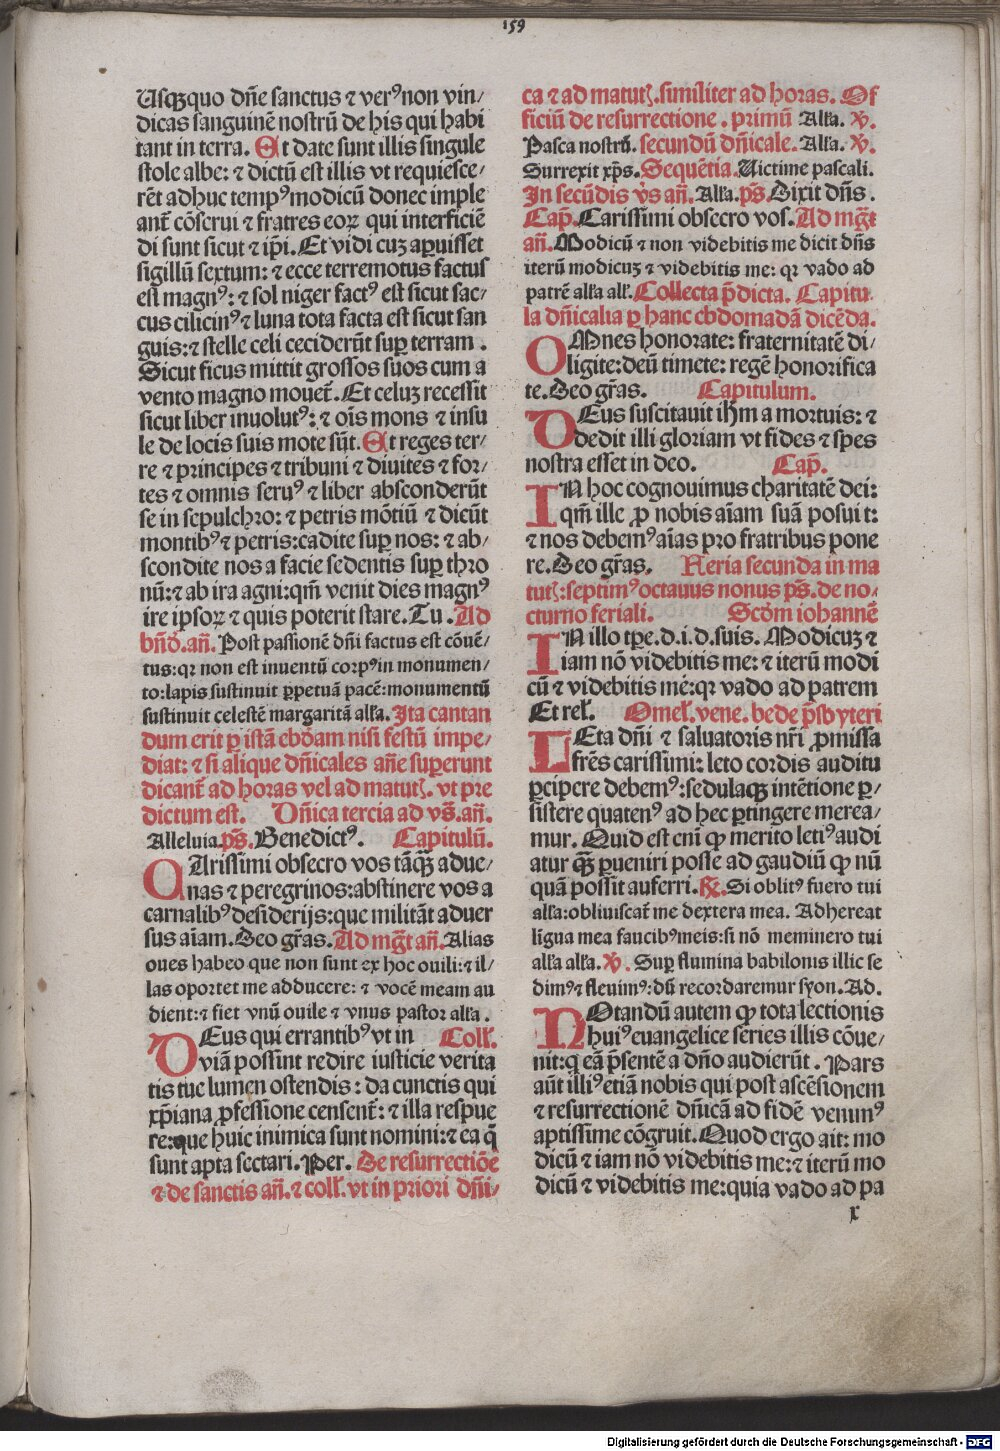 159
Usq̄ꝫquo dn̄e sanctus ⁊ verꝰ non vin/
dicas sanguinē nostrū de his qui habi
tant in terra. Et date sunt illis singule
stole albe: ⁊ dictū est illis vt requiesce/
rēt adhuc tempꝰ modicū donec imple
ant̄ cōserui ⁊ fratres eoꝝ qui interficiē
di sunt sicut ⁊ ip̄i. Et vidi cuꝫ aꝑuisset
sigillū sextum: ⁊ ecce terremotus factus
est magnꝰ: ⁊ sol niger factꝰ est sicut sac/
cus cilicinꝰ ⁊ luna tota facta est sicut san
guis: ⁊ stelle celi ceciderūt suꝑ terram.
Sicut ficus mittit grossos suos cum a
vento magno mouet̄. Et celuꝫ recessit
sicut liber inuolutꝰ: ⁊ oīs mons ⁊ insu
le de locis suis mote sūt. Et reges ter/
re ⁊ principes ⁊ tribuni ⁊ diuites ⁊ for/
tes ⁊ omnis seruꝰ ⁊ liber absconderūt
se in sepulchro: ⁊ petris mōtiū ⁊ dicūt
montibꝰ ⁊ petris: cadite suꝑ nos: ⁊ ab/
scondite nos a facie sedentis suꝑ thro
nū: ⁊ ab ira agni: qm̄ venit dies magnꝰ
ire ipsoꝝ ⁊ quis poterit stare. Tu. Ad
bn̄d. an̄. Post passionē dn̄i factus est cōuē/
tus: qꝛ non est inuentū corpꝰ in monumen/
to: lapis sustinuit ꝑpetuā pacē: monumentū
sustinuit celestē margaritā alľa. Ita cantan
dum erit ꝑ istā ebdam nisi festū impe/
diat: ⁊ si alique dn̄icales an̄e suꝑerunt
dicant̄ ad horas vel ad matutꝭ. vt pre
dictum est. Dn̄ica tercia ad vs̄. an̄.
Alleluia. ps̄. Benedictꝰ. Capitulū.
CArissimi obsecro vos tāq̄ꝫ adue/
nas ⁊ peregrinos: abstinere vos a
carnalibꝰ desiderijs: que militāt aduer
sus aīam. Deo gr̄as. Ad mgt̄ an̄. Alias
oues habeo que non sunt ex hoc ouili: ⁊ il/
las oportet me adducere: ⁊ vocē meam au
dient: ⁊ fiet vnū ouile ⁊ vnus pastor alľa.
DEus qui errantibꝰ vt in Coll̄.
viā possint redire iusticie verita
tis tue lumen ostendis: da cunctis qui
xp̄iana ꝓfessione censent̄: ⁊ illa respue
re: que huic inimica sunt nomini: ⁊ ea q̄
sunt apta sectari. Per. De resurrectiōe
⁊ de sanctis an̄. ⁊ coll̄. vt in priori dn̄i/
ca ⁊ ad matutꝭ. similiter ad horas. Of
ficiū de resurrectione. primū Alľa. ℣.
Pasca nostrū. secundū dn̄icale. Alľa. ℣.
Surrexit xp̄s. Sequētia. Uictime pascali.
In secūdis vs̄ an̄. Alľa. ps̄. Dixit dn̄s.
Cap̄. Carissimi obsecro vos. Ad mgt̄
an̄. Modicū ⁊ non videbitis me dicit dn̄s
iterū modicuꝫ ⁊ videbitis me: qꝛ vado ad
patrē alľa all̄. Collecta p̄dicta. Capitu/
la dn̄icalia ꝑ hanc ebdomadā dicēda.
OMnes honorate: fraternitatē di/
ligite: deū timete: regē honorifica
te. Deo gr̄as. Capitulum.
DEus suscitauit ihm̄ a mortuis: ⁊
dedit illi gloriam vt fides ⁊ spes
nostra esset in deo. Cap̄.
IN hoc cognouimus charitatē dei:
qm̄ ille ꝓ nobis aīam suā posuit:
⁊ nos debemꝰ aīas pro fratribus pone
re. Deo gr̄as. Feria secunda in ma
tutꝭ: septimꝰ octauus nonus ps̄. de no/
cturno feriali. Scdm iohannē
IN illo tp̄e. d. i. d. suis. Modicuꝫ ⁊
iam nō videbitis me: ⁊ iterū modi
cū ⁊ videbitis me: qꝛ vado ad patrem
Et rel̄. Omel̄. vene. bede p̄sbyteri
LEta dn̄i ⁊ saluatoris nr̄i ꝓmissa
fr̄es carissimi: leto cordis auditu
ꝑcipere debemꝰ: sedulaq̄ꝫ intētione ꝑ/
sistere quatenꝰ ad hec ꝑtingere merea/
mur. Quid est eni ꝙ merito letiꝰ audi
atur q̄ꝫ ꝑueniri posse ad gaudiū ꝙ nū
quā possit auferri. ℟. Si oblitꝰ fuero tui
alľa: obliuiscat̄ me dextera mea. Adhereat
līgua mea faucibꝰ meis: si nō meminero tui
alľa alľa. ℣. Suꝑ flumina babilonis illic se
dimꝰ ⁊ fleuimꝰ: dū recordaremur syon. Ad.
NOtandū autem ꝙ tota lectionis
huiꝰ euangelice series illis cōue/
nit: q̄ eā p̄sentē a dn̄o audierūt. Pars
aūt illiꝰ etiā nobis qui post ascēsionem
⁊ resurrectionē dn̄icā ad fidē venimꝰ
aptissime cōgruit. Quod ergo ait: mo
dicū ⁊ iam nō videbitis me: ⁊ iterū mo
dicū ⁊ videbitis me: quia vado ad pa
x
Digitalisierung gefördert durch die Deutsche Forschungsgemeinschaft - DFG